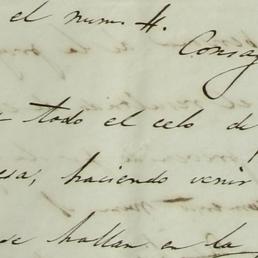 el num. 4.
Consag
todo el celo de
sa, haciendo venir
se hallan en la